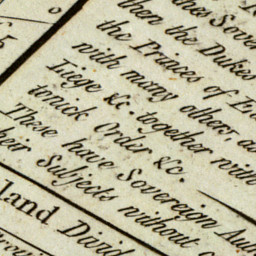 o
5
hes Sover
then the Dukes
the Princes of
with many others, a
Liege &c. together with
tonick Order &c.
These have Sovereign
heir Subjects without
land Divid